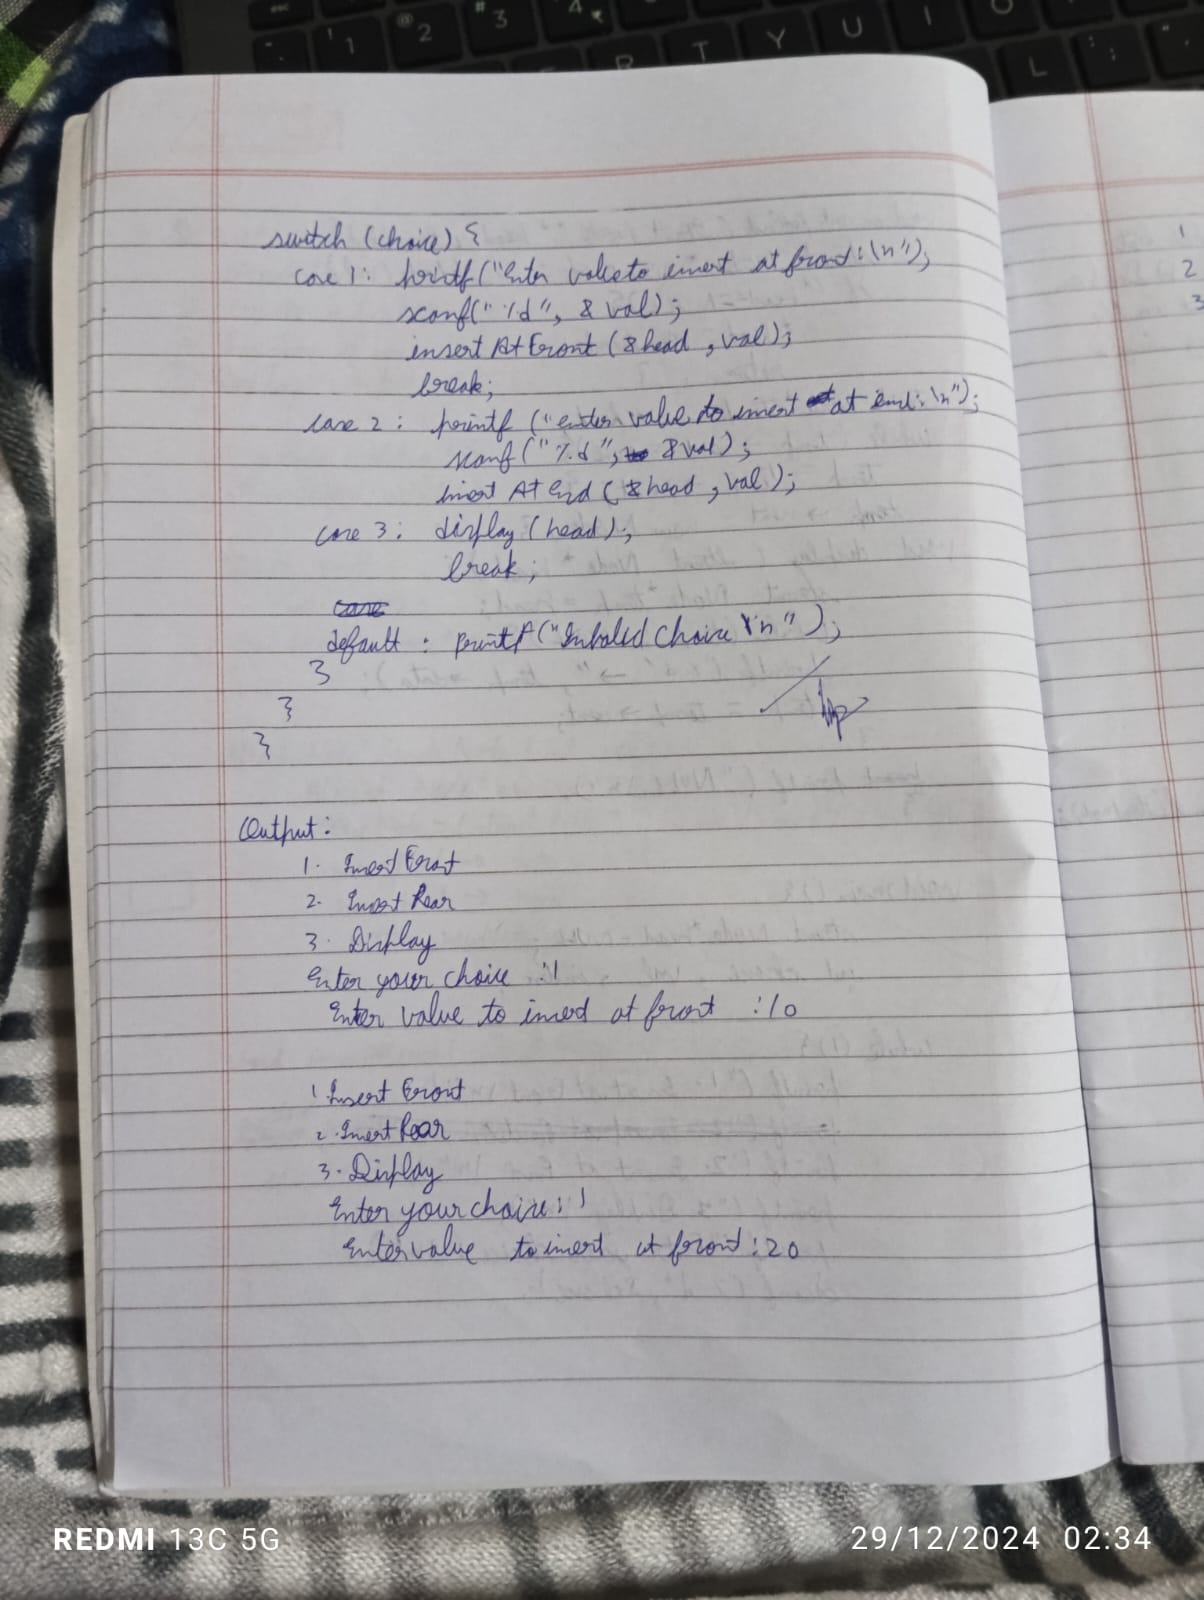 switch (choice) {
case 1: printf("Enter value to insert at front:\n");
scanf("%d", &val);
insertAtFront (&head, val);
break;
case 2: printf ("enter value to insert at end:\n");
scanf("%d", &val);
insert At End (&head, val);
case 3: display (head);
break;
case
default : printf("Invalid Choice \n");
}
}
}
Output:
1. Insert Front
2. Insert Rear
3. Display
Enter your choice :1
Enter value to insert at front :10
1 Insert Front
2. Insert Rear
3. Display
Enter your choice: 1
Enter value to insert at front: 20
1
2
3
@ 2
# 3
4 ₹
! 1
R T Y U I O
L : ;
REDMI 13C 5G
29/12/2024 02:34